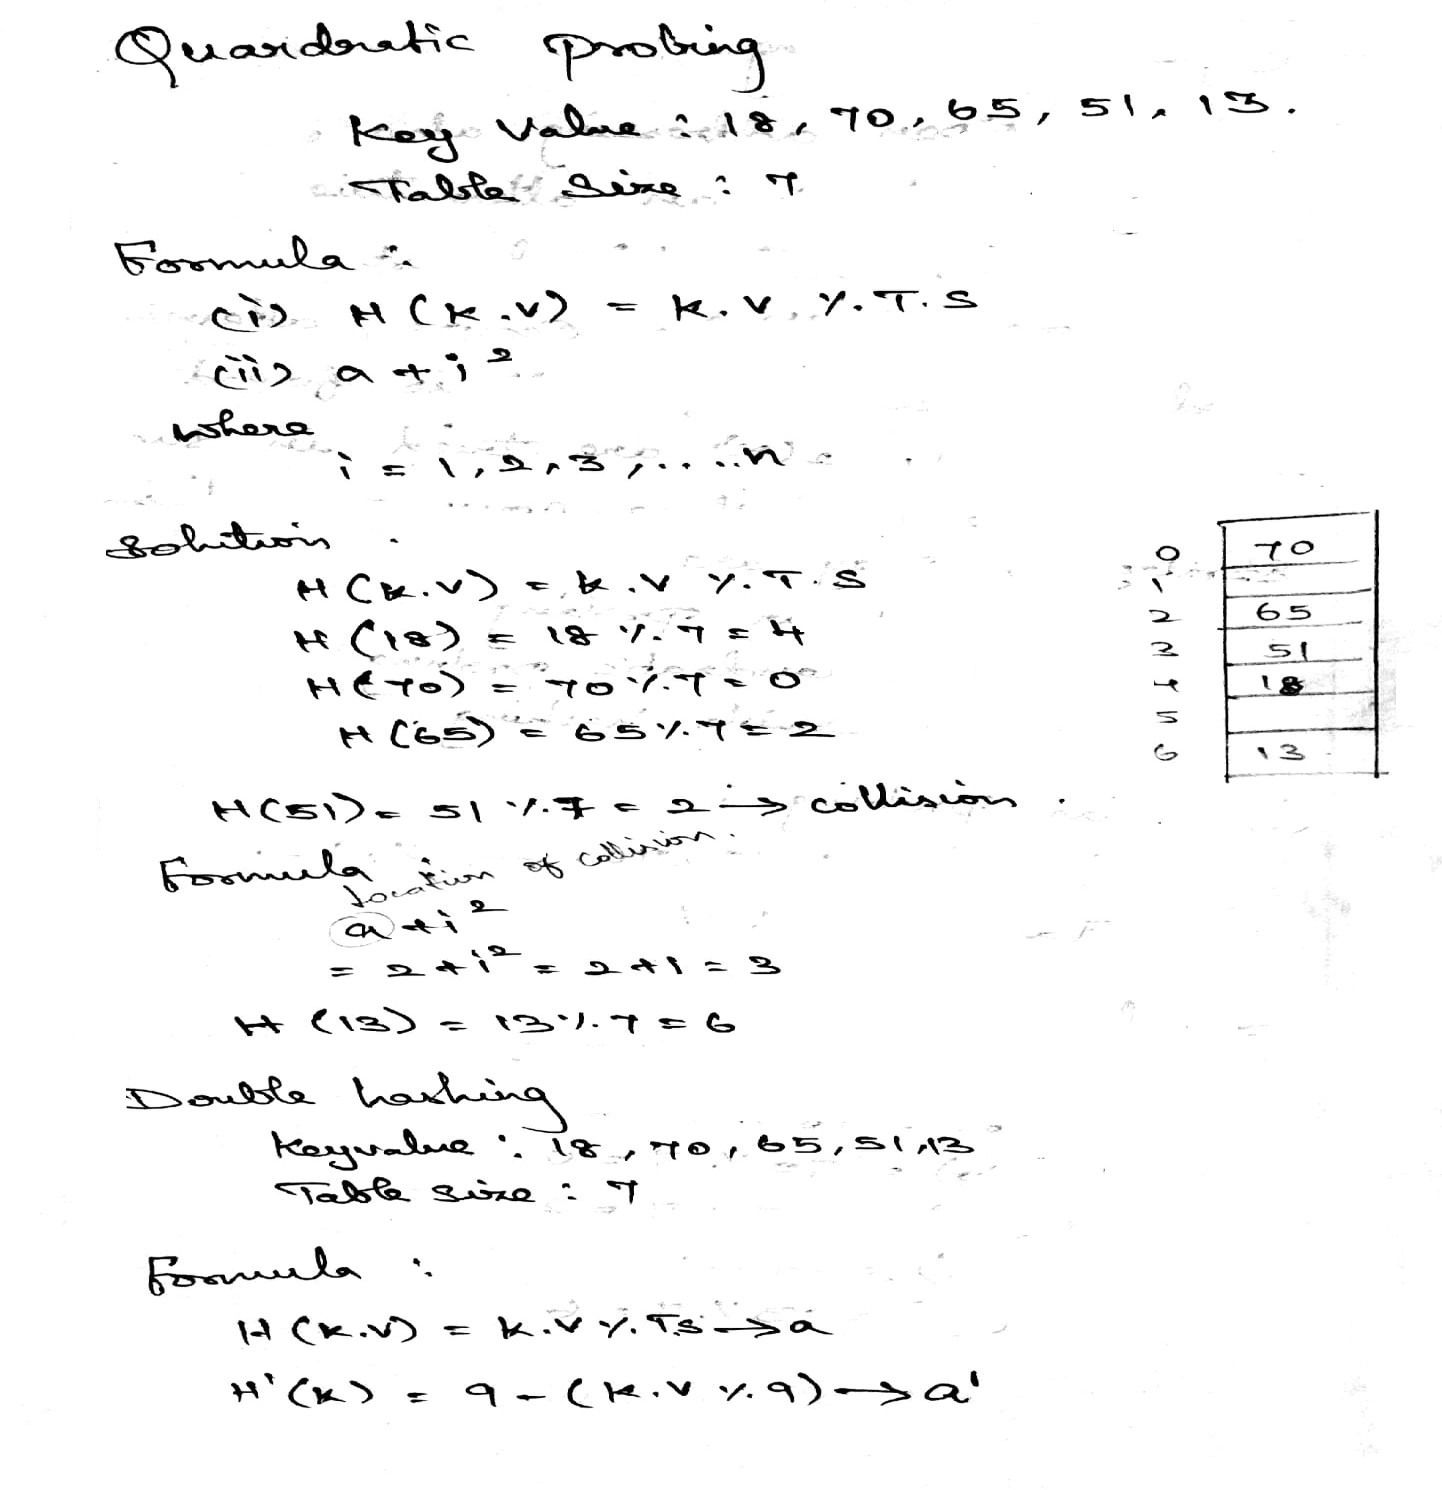 Quardratic probing
Key Value : 18, 70, 65, 51, 13.
Table Size : 7
Formula :
(i) H(K.V) = K.V % T.S
(ii) a + i²
where
i = 1, 2, 3, ..... n
Solution
H(K.V) = K.V % T.S
H(18) = 18 % 7 = 4
H(70) = 70 % 7 = 0
H(65) = 65 % 7 = 2
0 70
1
2 65
3 51
4 18
5
6 13
H(51) = 51 % 7 = 2 → collision.
Formula
location of collision.
a + i²
= 2 + i² = 2 + 1 = 3
H(13) = 13 % 7 = 6
Double hashing
Keyvalue : 18, 70, 65, 51, 13
Table size : 7
Formula :
H(K.V) = K.V % T.S → a
H'(K) = 9 - (K.V % 9) → a'